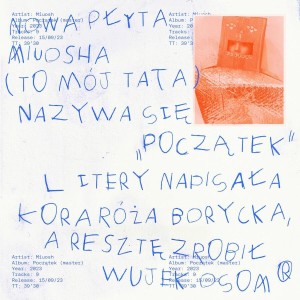 Artist: Miuosh
Album: Początek (master)
Year: 2023
Tracks: 9
Release: 15/09/23
TT: 30'30
Artist: Miuosh
Album: Początek (master)
NOWA PŁYTA
MIUOSHA
(TO MÓJ TATA)
NAZYWA SIĘ
„POCZĄTEK"
LITERY NAPISAŁA
KORA RÓŻA BORYCKA,
A RESZTĘ ZROBIŁ
WUJEK OSOM ®
Artist: Miuosh
Album: Początek (master)
Year: 2023
Tracks: 9
Release: 15/09/23
TT: 30'30
Artist: Miuosh
Album: Początek (master)
Year: 2023
Tracks: 9
Release: 15/09/23
TT: 30'30